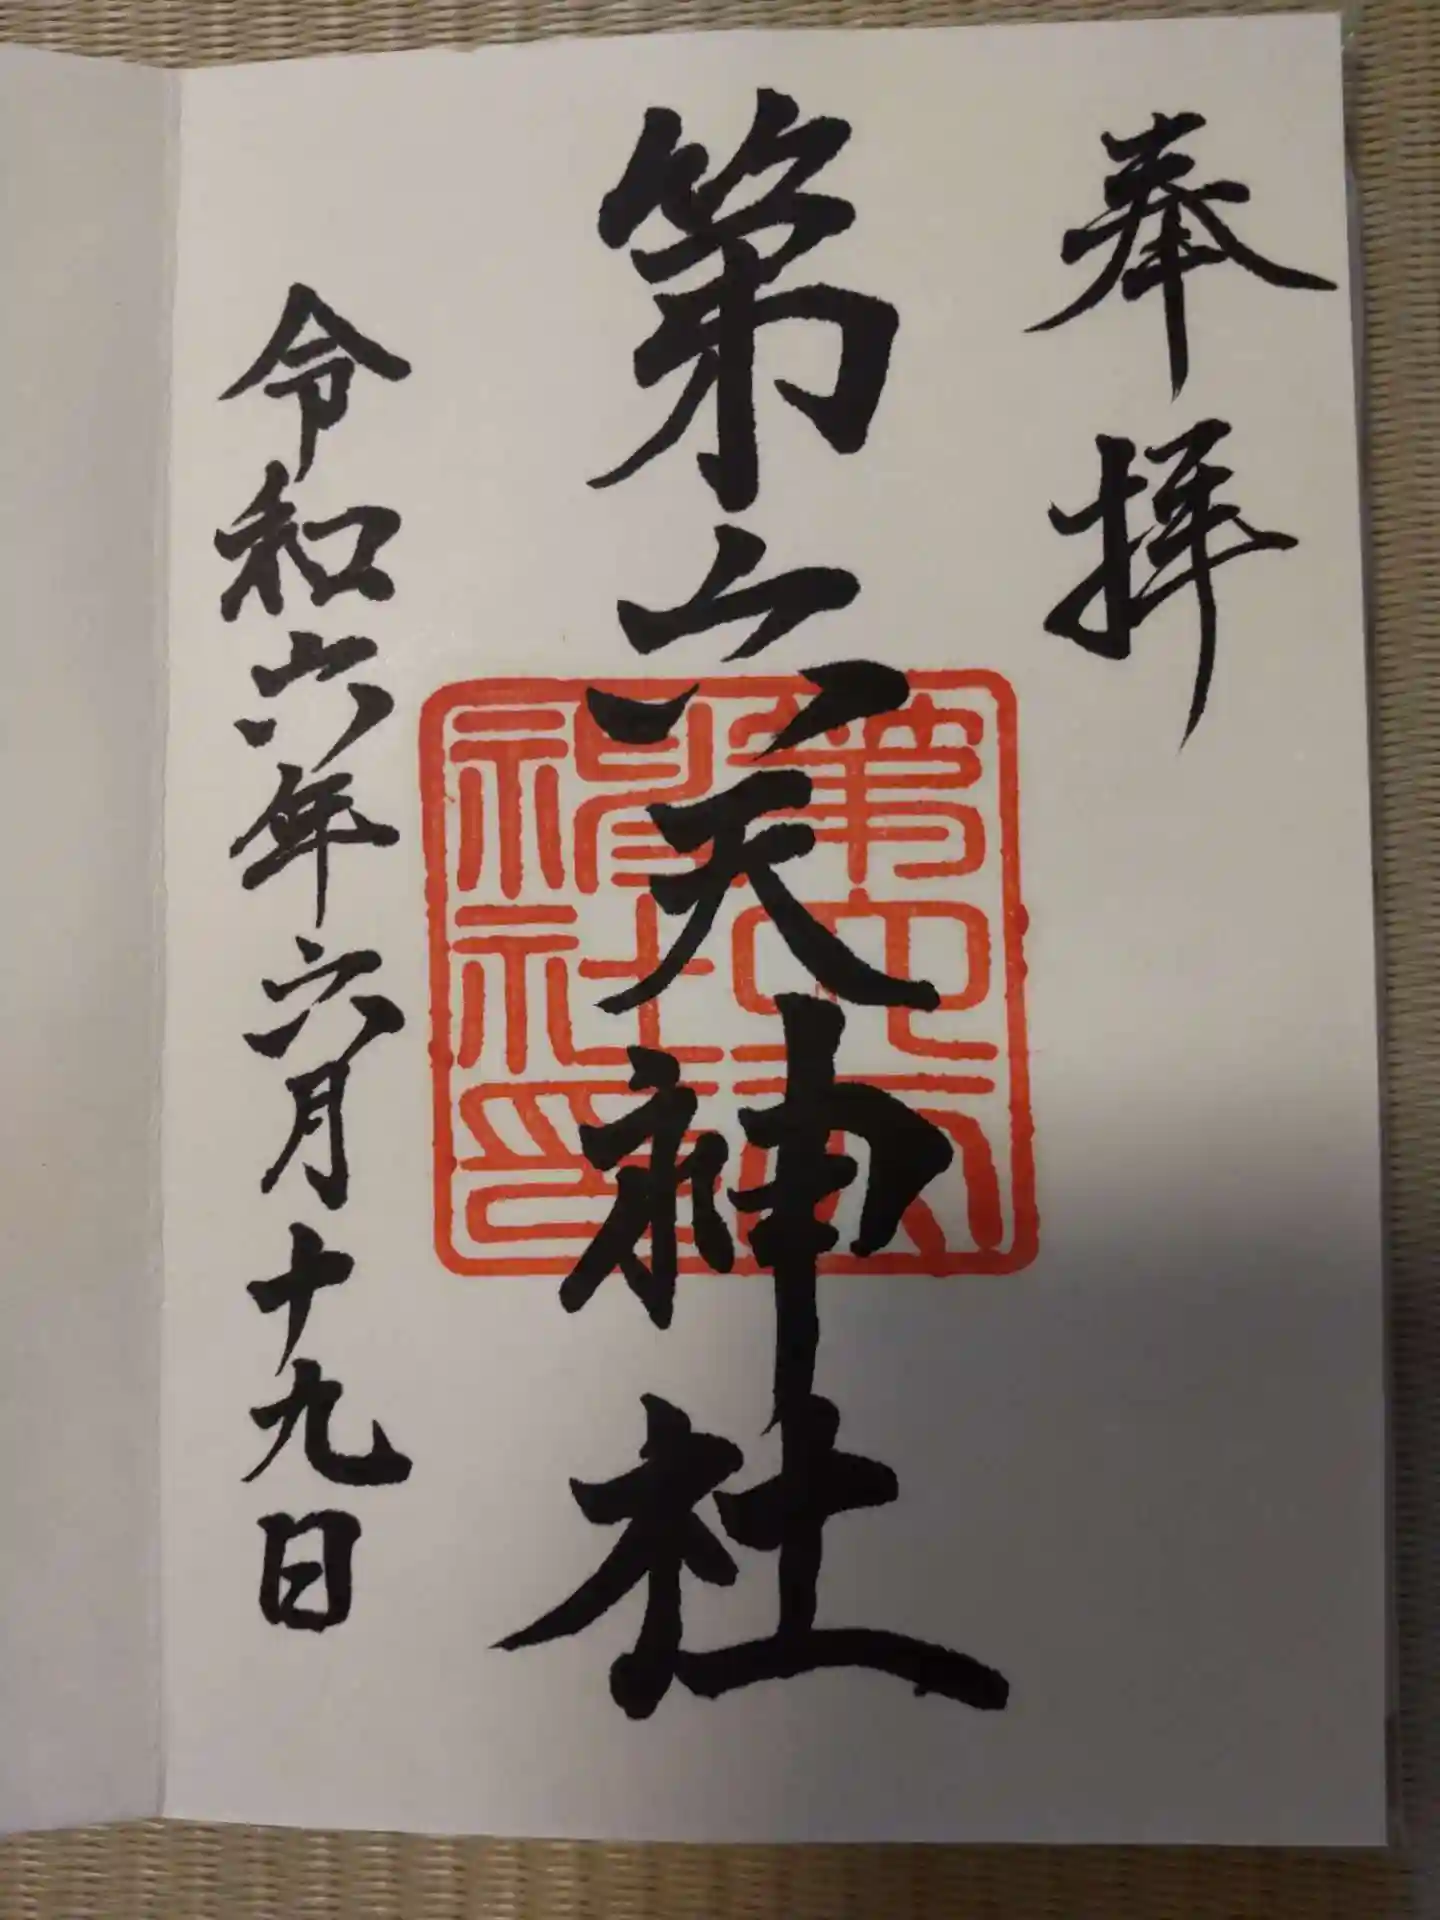 奉拝
第六天神社
第六天
神社印
令和六年六月十九日